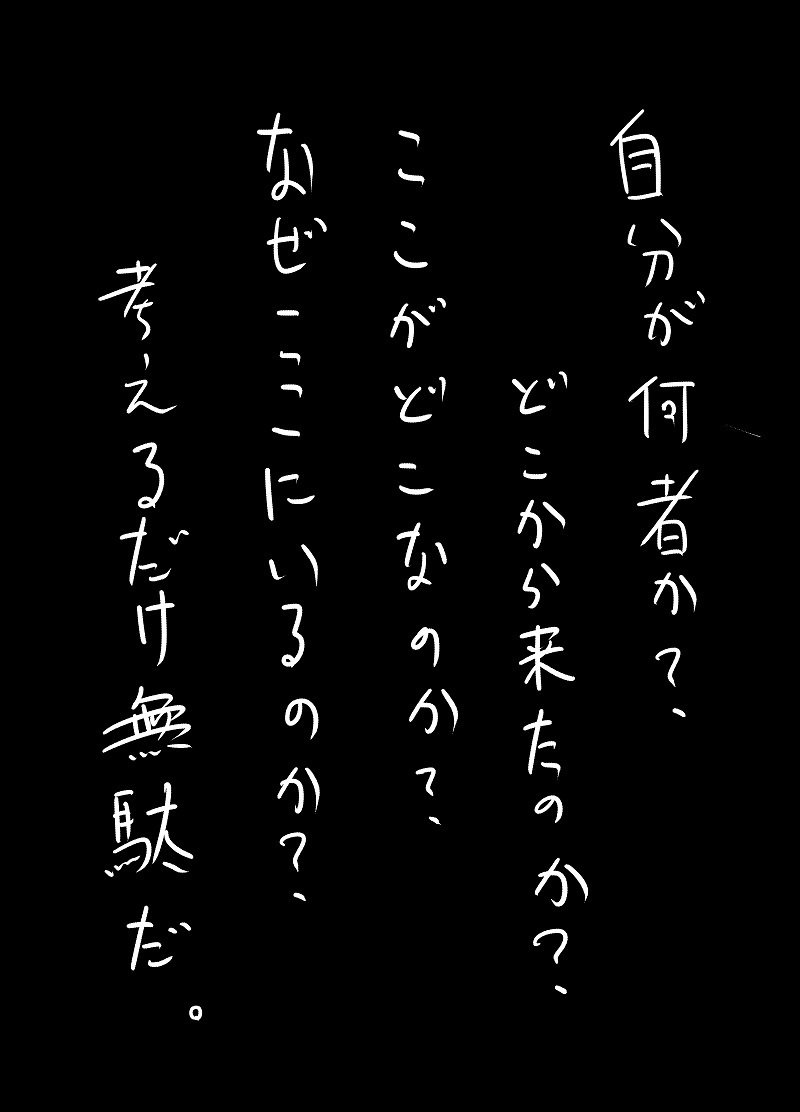 自分が何者か？
どこから来たのか？
ここがどこなのか？
なぜここにいるのか？
考えるだけ無駄だ。